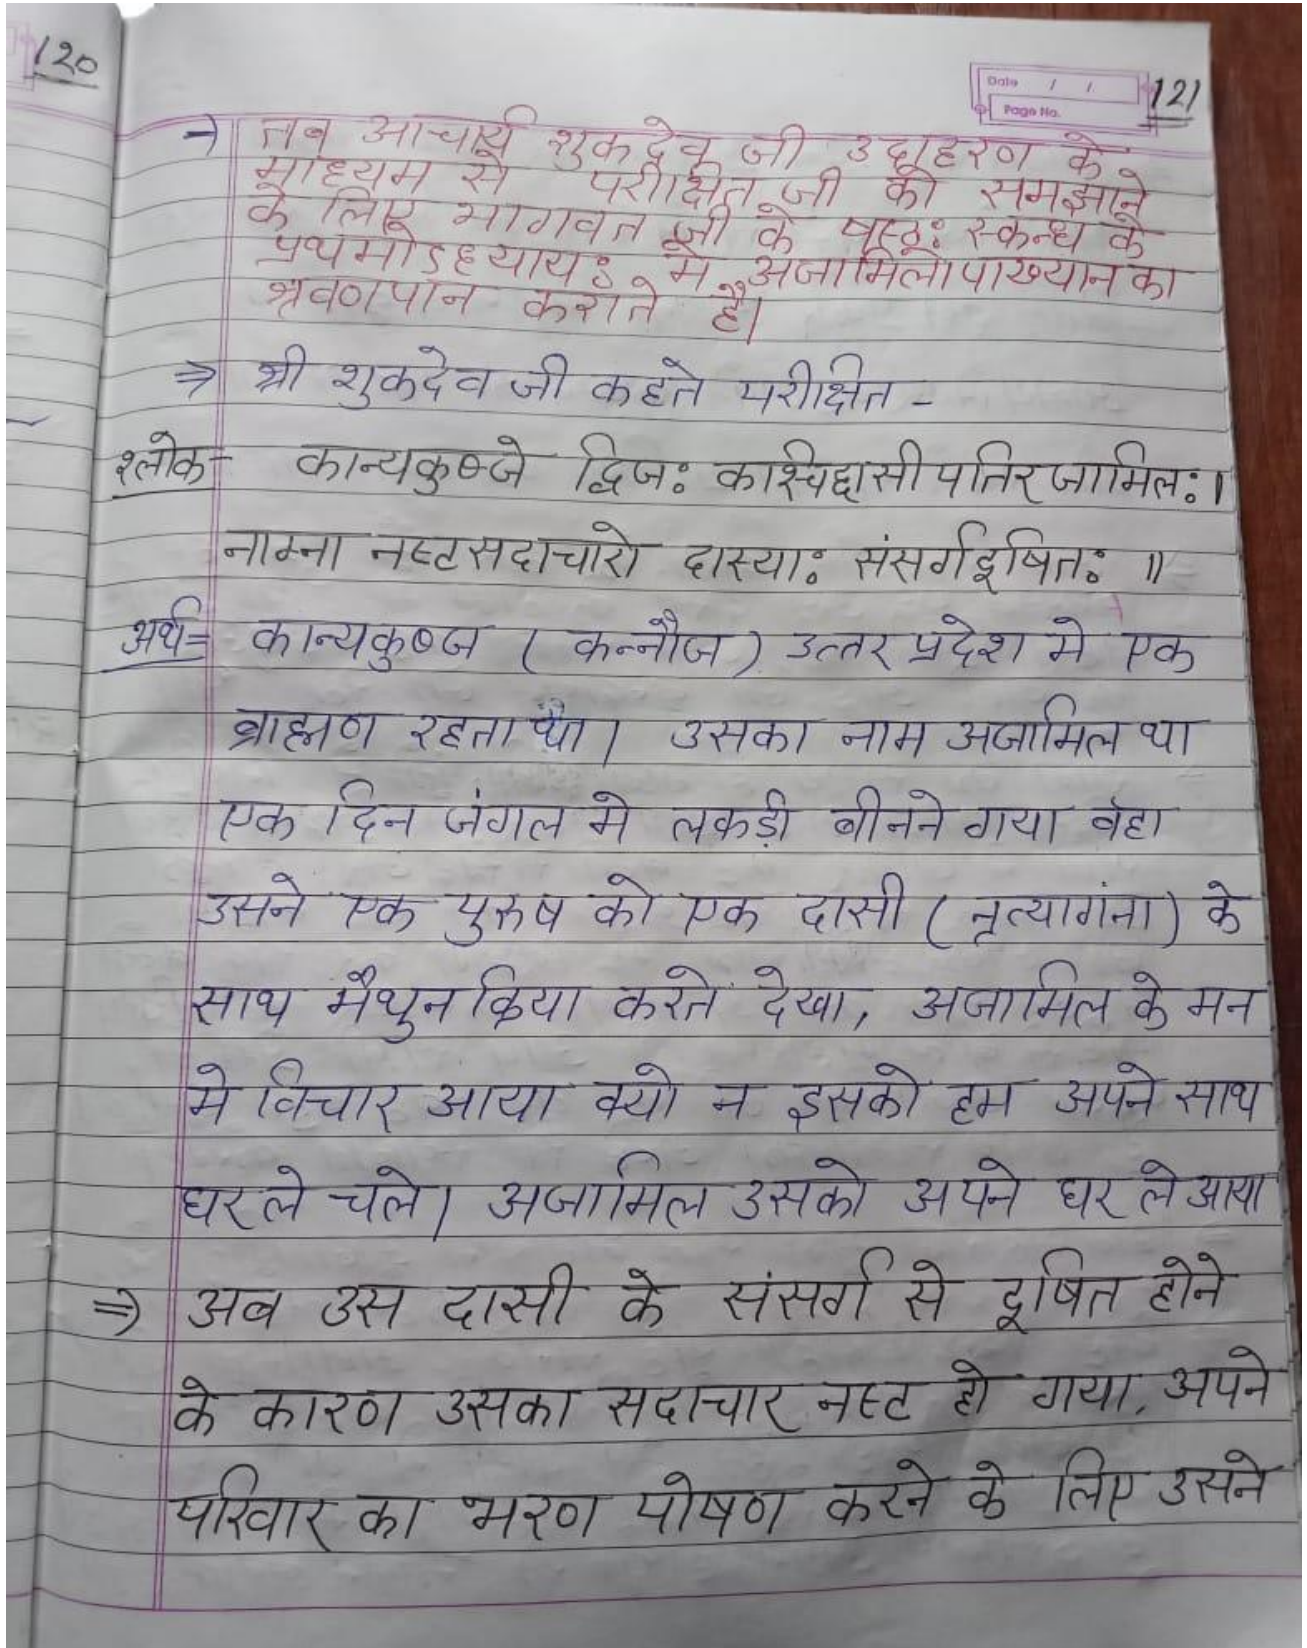 120
Date / /
Page No.
121
→ तब आचार्य शुकदेव जी उदाहरण के
माध्यम से परीक्षित जी को समझाने
के लिए भागवत जी के षष्ठः स्कन्ध के
प्रथमोऽध्यायः मे अजामिलोपाख्यान का
श्रवणपान कराते है।
⇒ श्री शुकदेव जी कहते परीक्षित -
श्लोक- कान्यकुब्जे द्विजः कश्चिद्दासी पतिरजामिलः।
नाम्ना नष्टसदाचारो दास्याः संसर्गदूषितः ॥
अर्थ= कान्यकुब्ज ( कन्नौज ) उत्तर प्रदेश मे एक
ब्राह्मण रहता था। उसका नाम अजामिल था
एक दिन जंगल मे लकड़ी बीनने गया वहा
उसने एक पुरुष को एक दासी ( नृत्यागंना ) के
साथ मैथुन क्रिया करते देखा, अजामिल के मन
मे विचार आया क्यो न इसको हम अपने साथ
घर ले चले। अजामिल उसको अपने घर ले आया
⇒ अब उस दासी के संसर्ग से दूषित होने
के कारण उसका सदाचार नष्ट हो गया, अपने
परिवार का भरण पोषण करने के लिए उसने